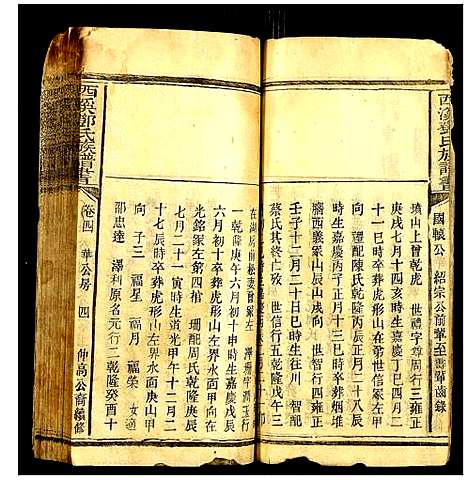 西溪鄧氏族譜書
國轅公 紹宗公前輩至善輩齒錄
墳山上曾乾虎 世禮字尊周行三雍正
庚戌七月十四亥時生嘉慶丁巳四月二
十一巳時卒葬虎形山左第世信公右
一月 聰配陳氏乾隆 年二十八辰
時生嘉慶丙子正月十三時卒葬烟堆
腦西義冢山辰山戌向 世智行四雍正
壬子十二月二十日辰時生往川 智配
蔡氏其 終亡歿 世哲行五乾隆戊午三
在湖
一乾隆庚午六月初十申時生嘉慶戊辰
六月初十卒葬虎形山左界水面甲向在
光銘冢左第四棺 珊配周氏乾隆庚辰
七月二十一寅時生道光甲午十二月二
十七辰時卒葬虎形山左界水面庚山甲
向 子三 福星 福月 福榮 女適
邵忠達 澤利原名元行二乾隆癸酉十
西溪鄧氏族譜書
卷四 華公房 四 仲高公裔續修